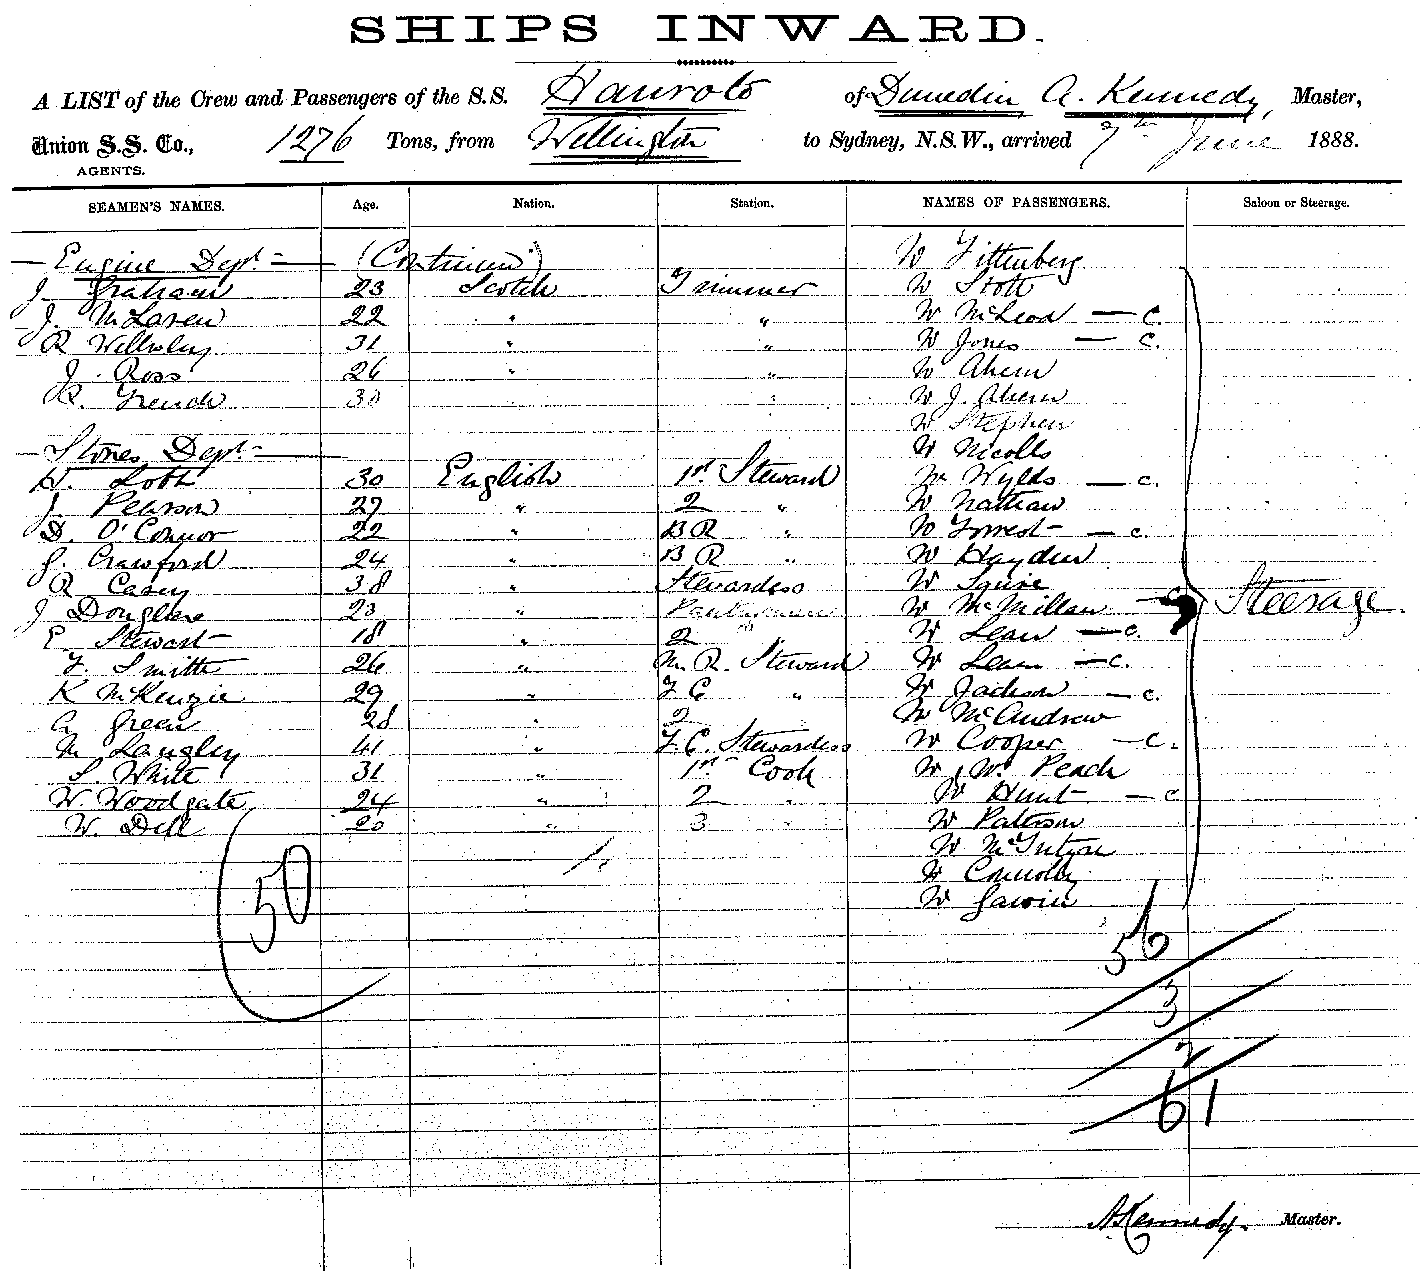 SHIPS INWARD.
A LIST of the Crew and Passengers of the S.S. Hauroto of Dunedin A. Kennedy, Master,
Union S.S. Co., 1276 Tons, from Wellington to Sydney, N.S.W., arrived 7th June 1888.
AGENTS.
SEAMEN'S NAMES. Age. Nation. Station. NAMES OF PASSENGERS. Saloon or Steerage.
— Engine Dept. — (Continued) W Tittenberg
J. Graham 23 Scotch Trimmer W Stott
J. McLaren 22 " " W McLeod — c.
R Wellesley 31 " " W Jones — c.
J. Ross 26 " " W Ahern
R. French 30 " W J. Ahern
W Stephen
— Stores Dept. — W Nicolls
H. Lobb 30 English 1st Steward W Wylds — c.
J. Pearson 27 " 2 " W Nathan
D. O'Connor 22 " B R " W Forrest — c.
G. Crawford 24 " B R " W Hayden
R Casey 38 " Stewardess W Squire
J Douglas 23 " Pantryman W McMillan — c Steerage.
E Stewart 18 " 2 " W Lean — c.
F. Smith 26 " M. R. Steward W Lean — c.
K McKenzie 29 " F C " W Jackson — c.
A Green 28 " 2 W McAndrew
M Langley 41 " F. C. Stewardess W Cooper — c.
S. White 31 " 1st Cook W W. Peach
W Woodgate 24 " 2 " W Hunt — c
W. Dell 20 " 3 " W Paterson
W McIntyre
50 W Connolly
W Gawin
56
3
2
61
A. Kennedy. Master.